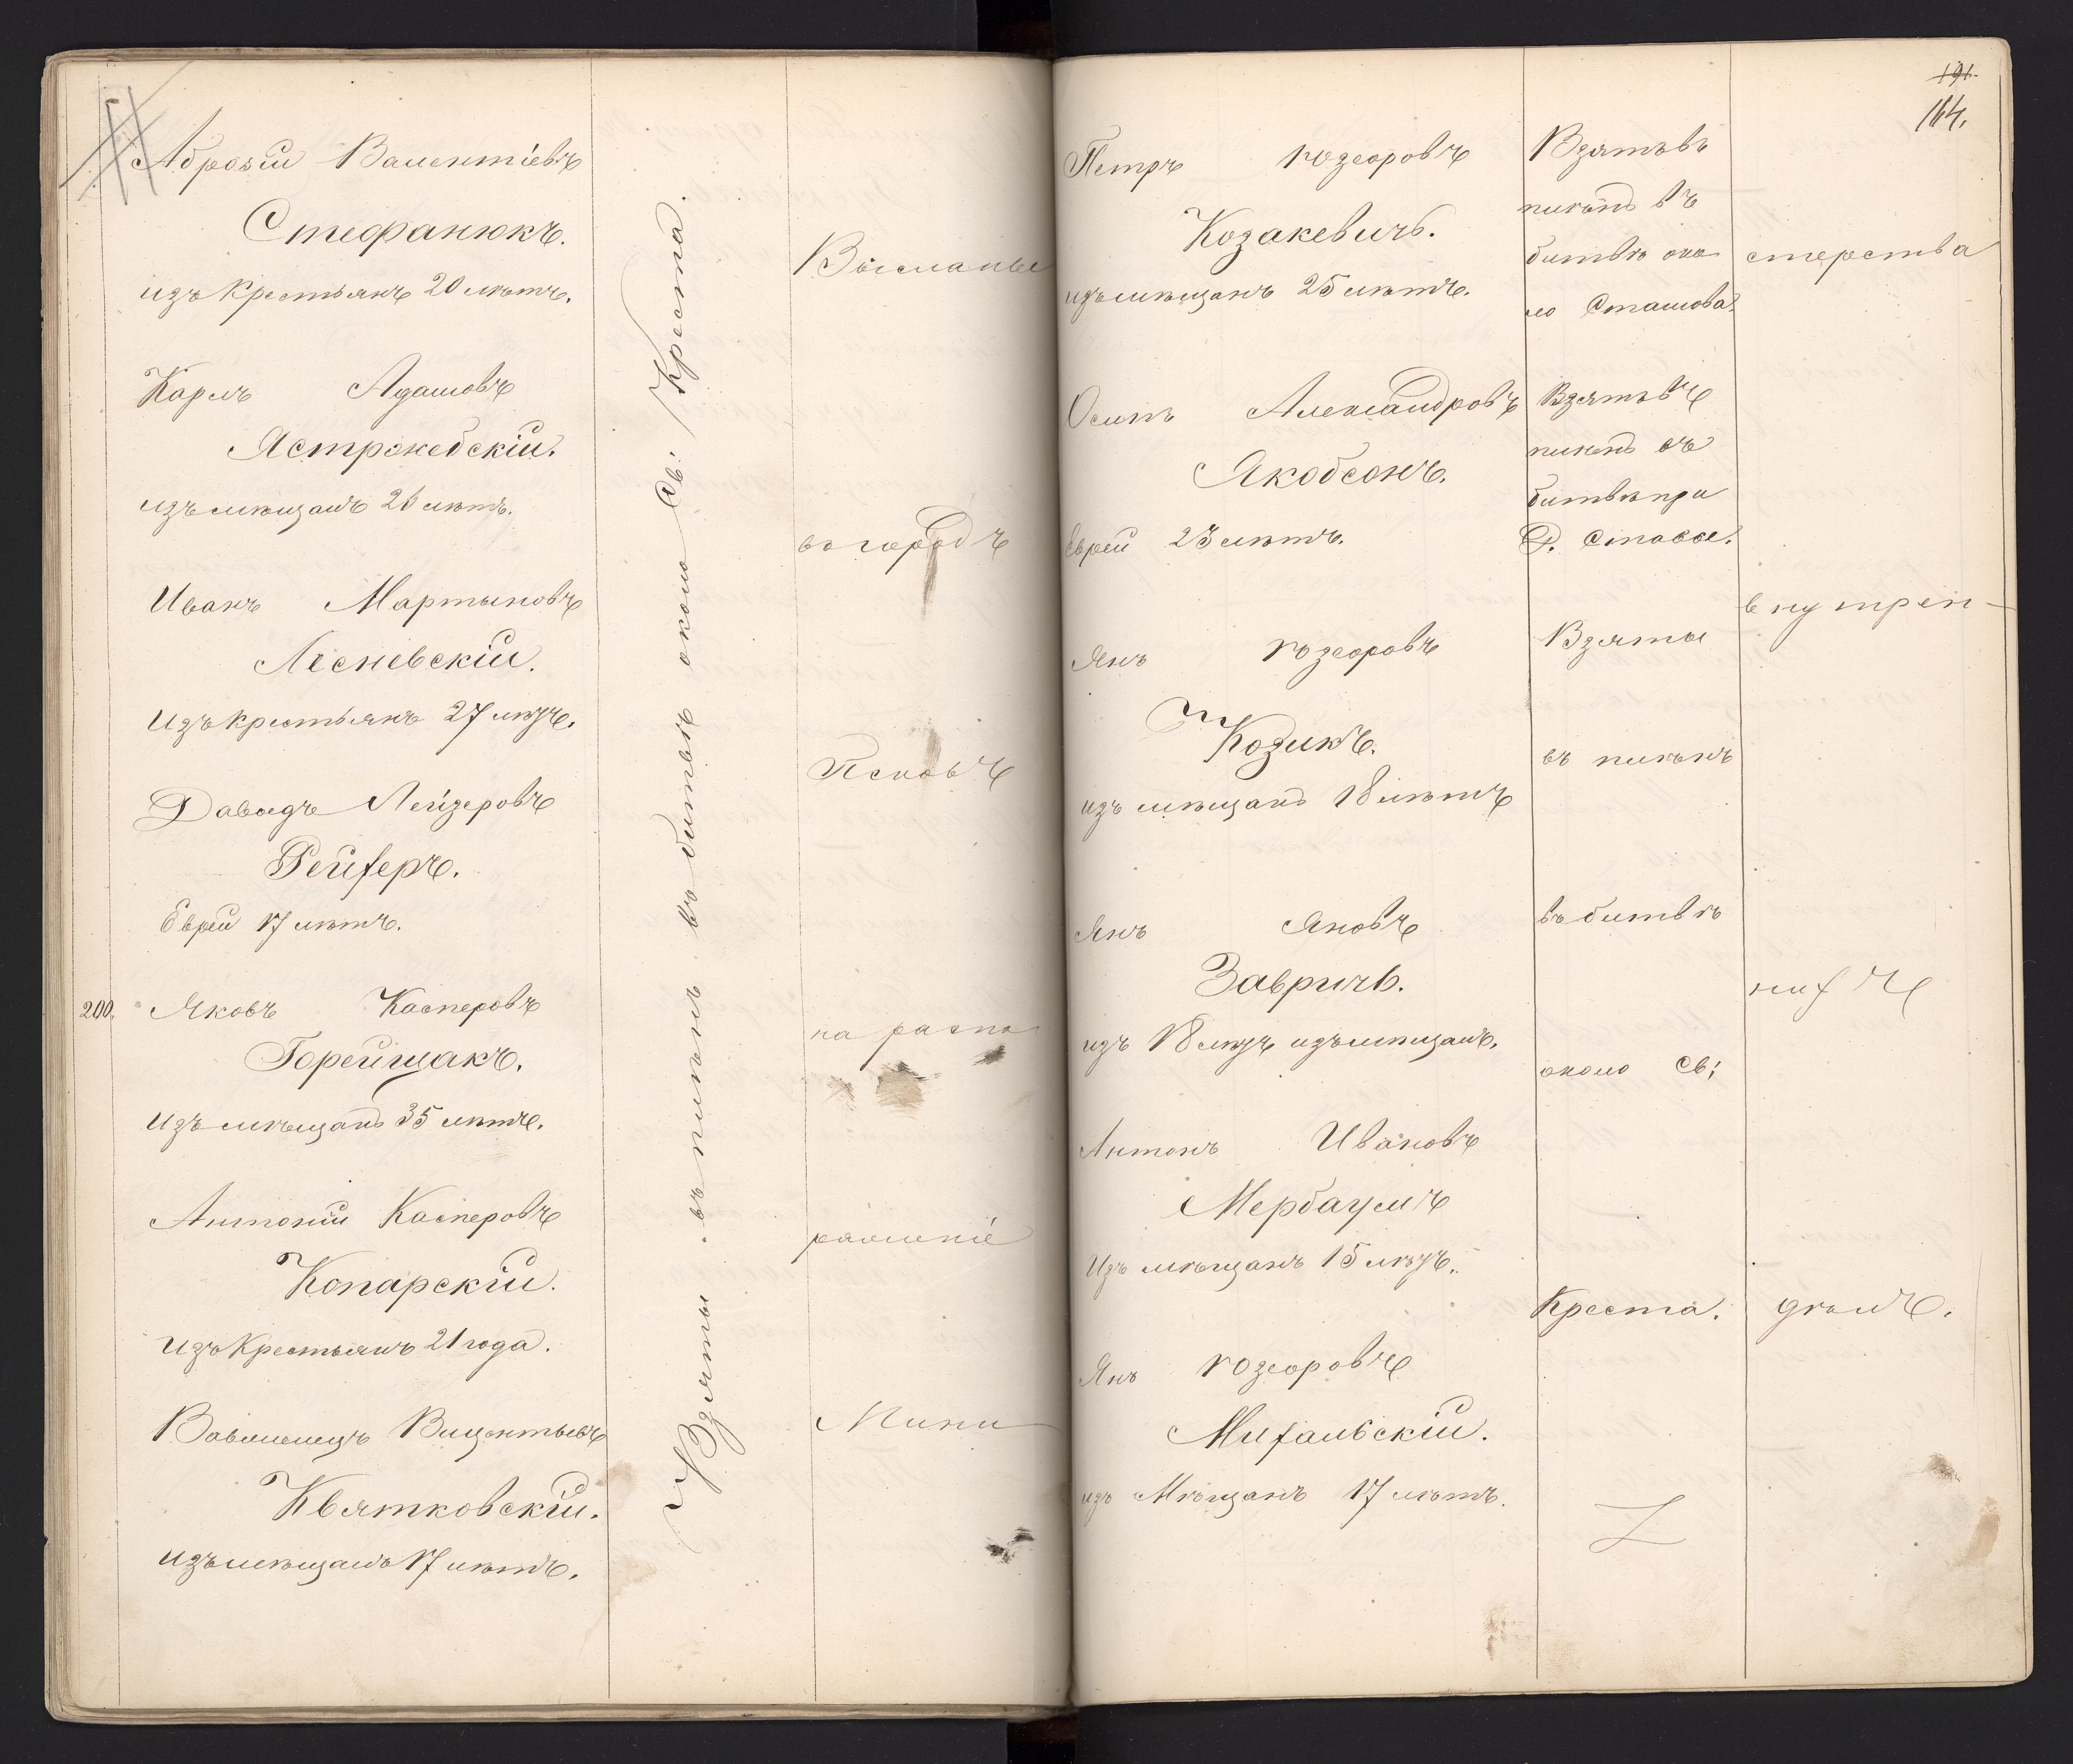 Аброзій Валентіевъ
Стефанюкъ.
изъ крестьянъ 20 лѣтъ.
Карлъ Адамовъ
Ястржебскій.
изъ мѣщанъ 26 лѣтъ.
Иванъ Мартыновъ
Лесневскій.
изъ крестьянъ 27 лѣтъ.
Давыдъ Лейзеровъ
Рейхеръ.
Еврей 17 лѣтъ.
200. Яковъ Касперовъ
Горейщакъ.
изъ мѣщанъ 35 лѣтъ.
Антоній Касперовъ
Копарскій.
изъ крестьянъ 21 года.
Вицентьевъ
Квятковскій.
изъ мѣщанъ 17 лѣтъ.
Взяты въ плѣнъ въ битвѣ около Св: Креста.
Высланы
въ городъ
Псковъ
на распо
ряженіе
Мини
191.
164.
Петръ Юзеоровъ
Козакевичъ.
изъ мѣщанъ 25 лѣтъ.
Осипъ Александровъ
Якобсонъ.
Еврей 23 лѣтъ.
Янъ Юзеоровъ
Козикъ.
изъ мѣщанъ 18 лѣтъ
Янъ Яновъ
Завричъ.
изъ 18 лѣтъ изъ мѣщанъ.
Антонъ Ивановъ
Мербаумъ
Изъ мѣщанъ 15 лѣтъ.
Янъ Юзеоровъ
Михальскій.
изъ Мѣщанъ 17 лѣтъ.
Взятъ въ
плѣнъ въ
битвѣ око
ло Сташова.
Взятъ въ
плѣнъ въ
битвѣ при
Д. Стовое.
Взяты
въ плѣнъ
въ битвѣ
около Св:
Креста.
стерства
внутрен-
нихъ
дѣлъ.